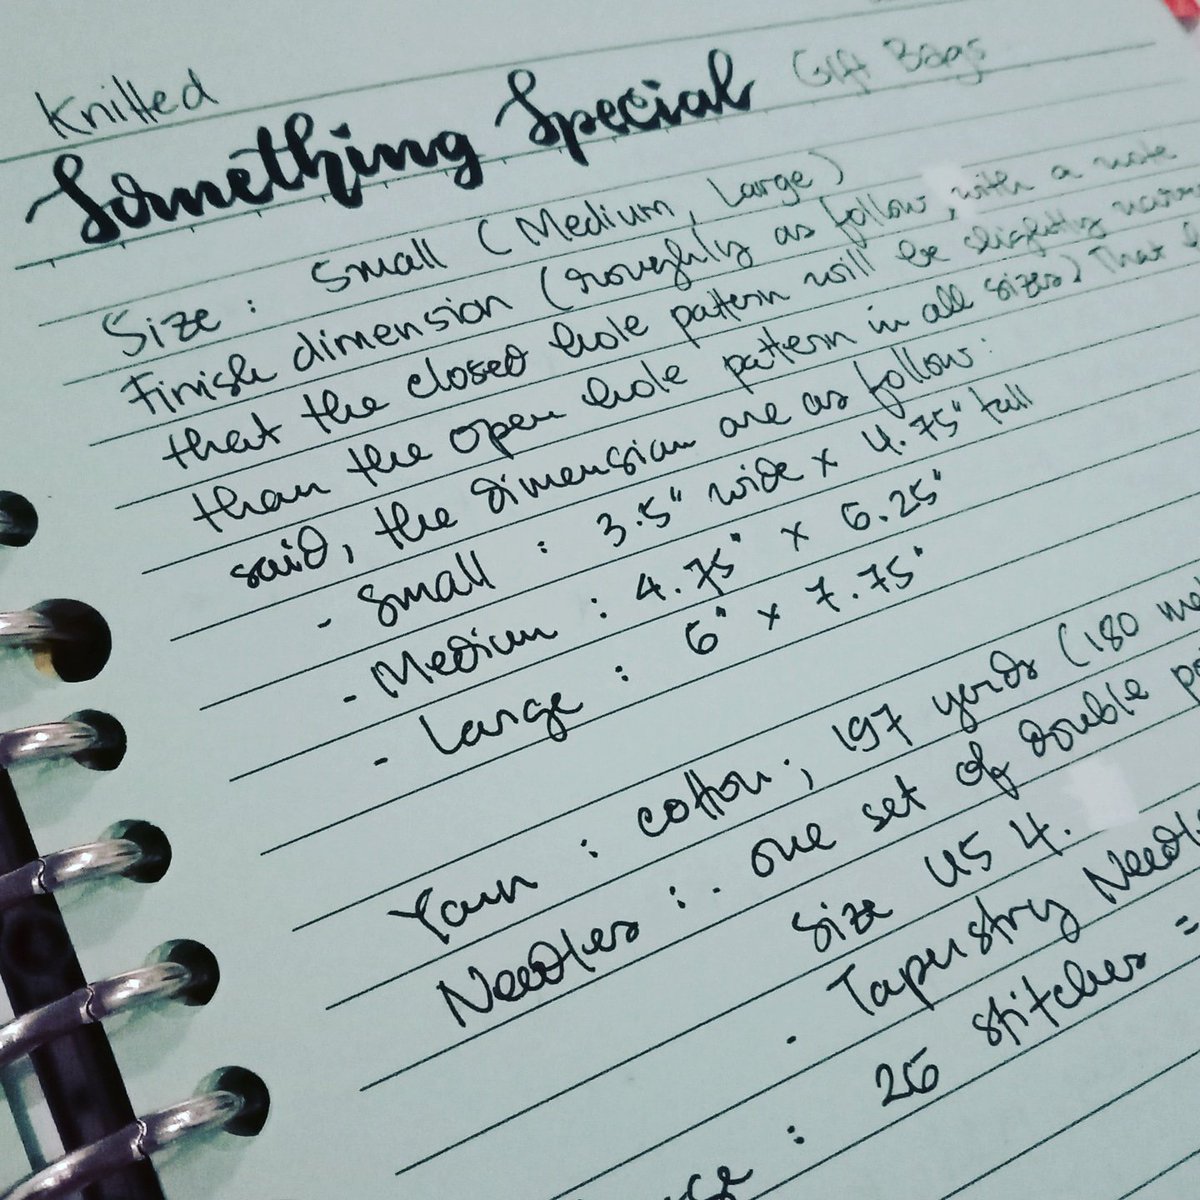 Knitted
Something Special Gift Bags
Size : Small (Medium, Large)
Finish dimension (roughly as follow, with a note
that the closed hole pattern will be slightly
than the open hole pattern in all sizes) That
said, the dimension are as follow:
- Small : 3.5" wide x 4.75" tall
- Medium : 4.75" x 6.25"
- Large : 6" x 7.75"
Yarn : cotton; 197 yards (180
Needles : . one set of double
size US 4.
. Tapestry
: 26 stitches =